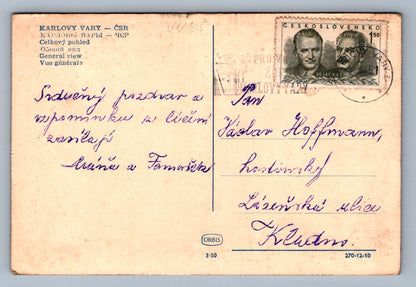 KARLOVY VARY — ČSR
КАРЛОВЫ ВАРЫ — ЧСР
Celkový pohled
Общий вид
General view
Vue générale
ČESKOSLOVENSKO
1.50
Srdečný pozdrav a
vzpomínku z léčení
zasílají
a
Pan
Václav Hoffmann,
hostinský
Lázeňská ulice
Kladno.
ORBIS
3-50
270-12-10